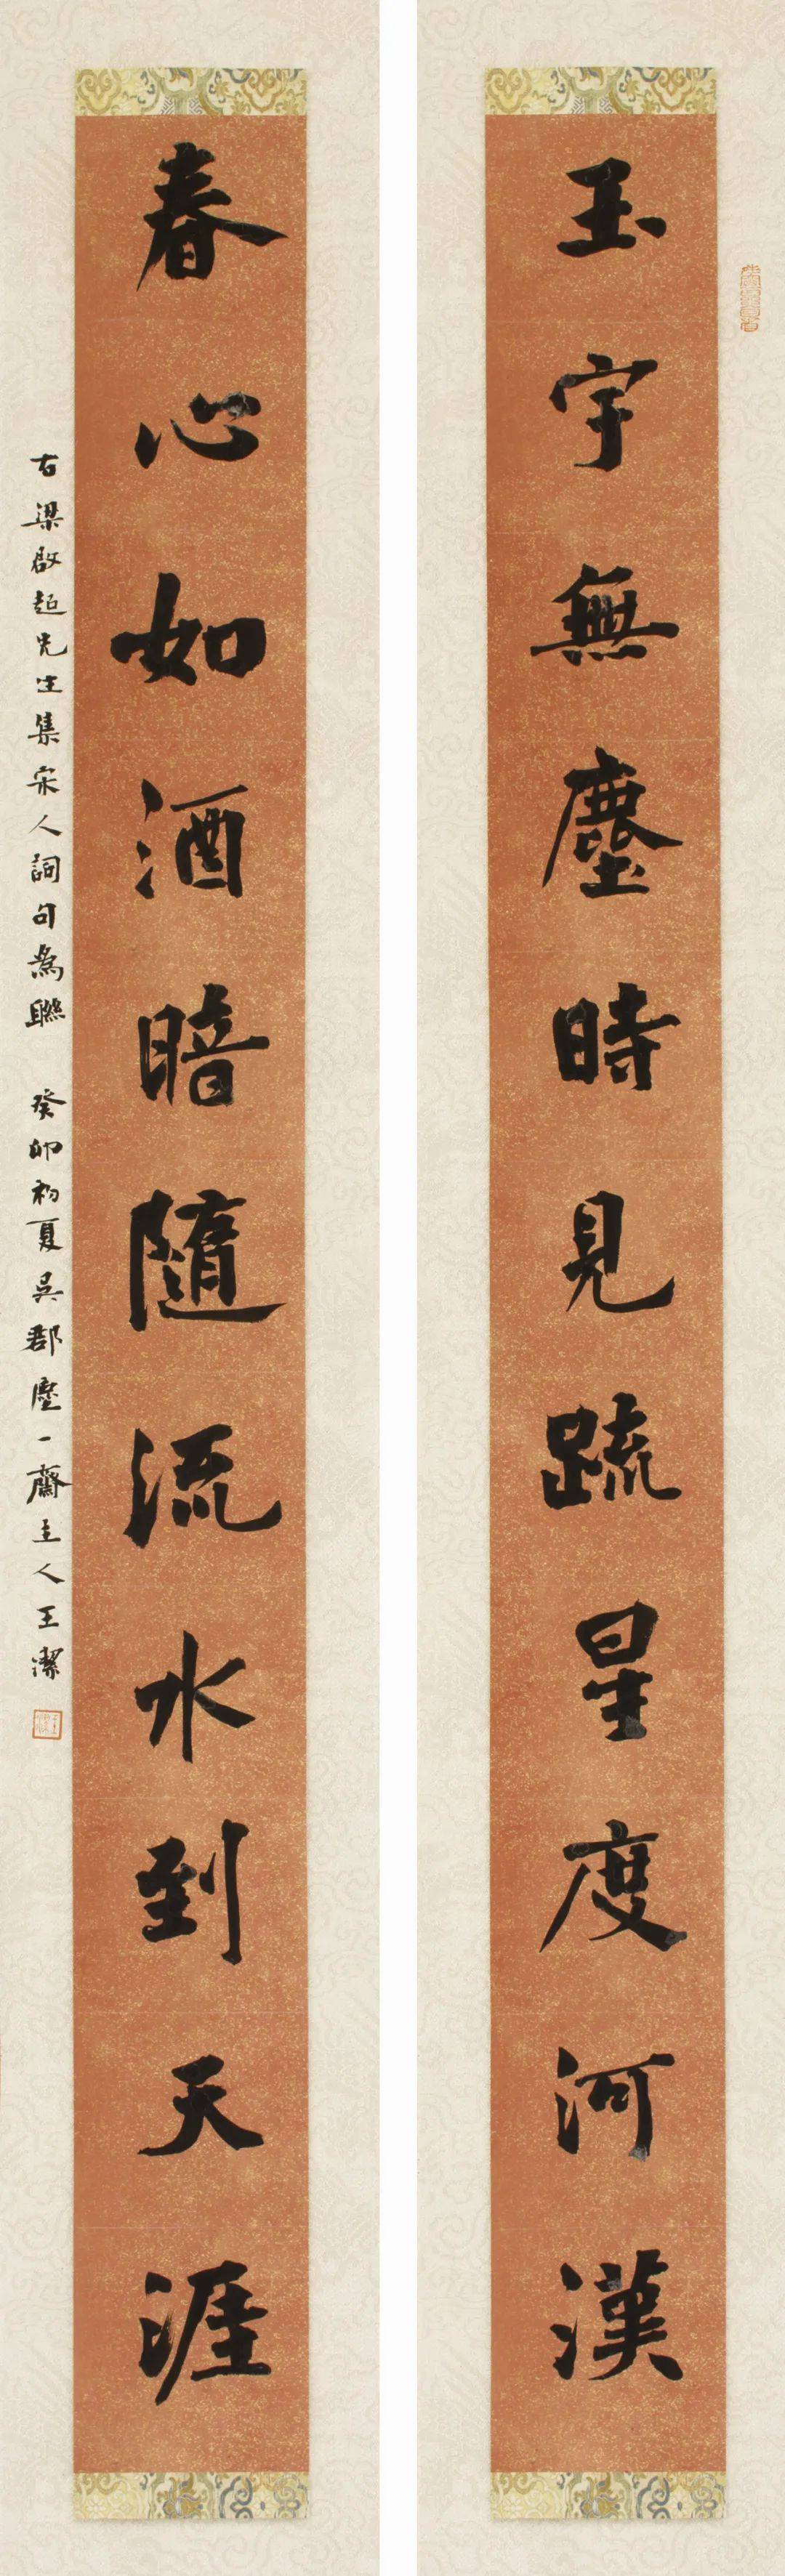 玉宇無塵時見疏星度河漢
春心如酒暗隨流水到天涯
右梁啟超先生集宋人詞句為聯 癸卯初夏吳郡壓一齋主人王潔